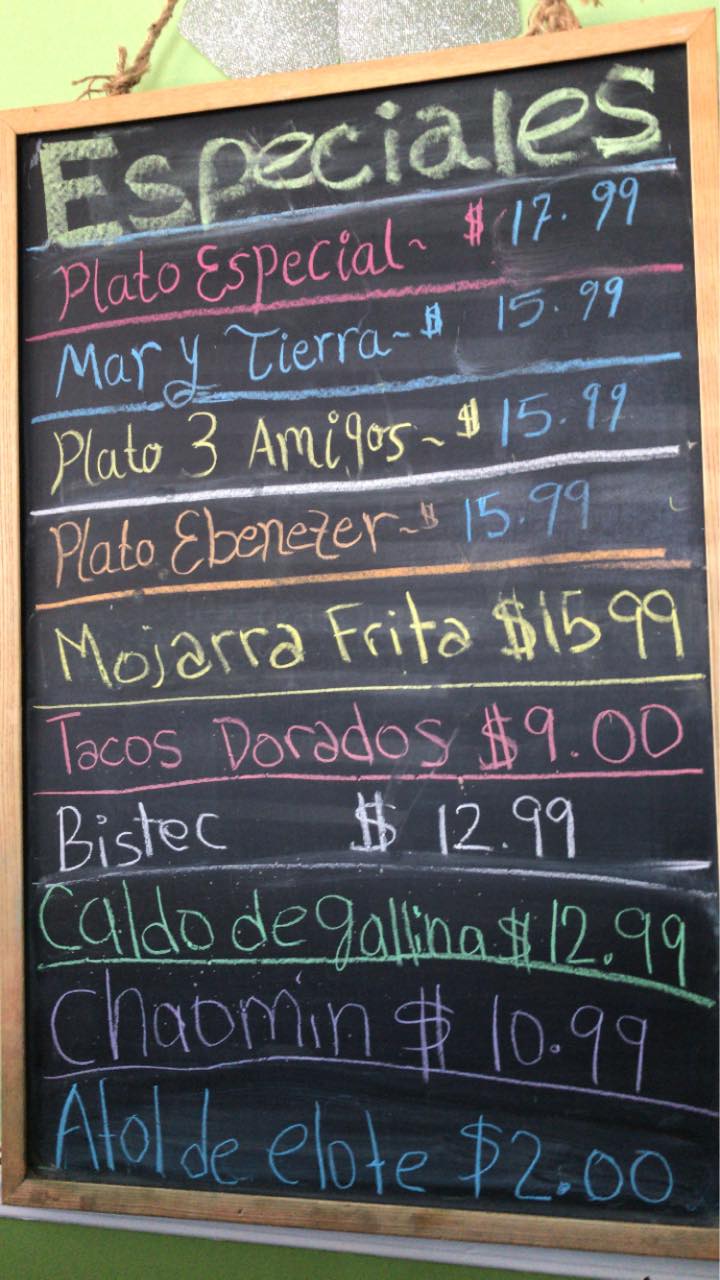 Especiales
Plato Especial~ $ 17.99
Mar y Tierra~$ 15.99
Plato 3 Amigos~$ 15.99
Plato Ebenezer~$ 15.99
Mojarra Frita $15 99
Tacos Dorados $9.00
Bistec $ 12.99
Caldo de gallina $12.99
Chaomin $ 10.99
Atol de elote $2.00